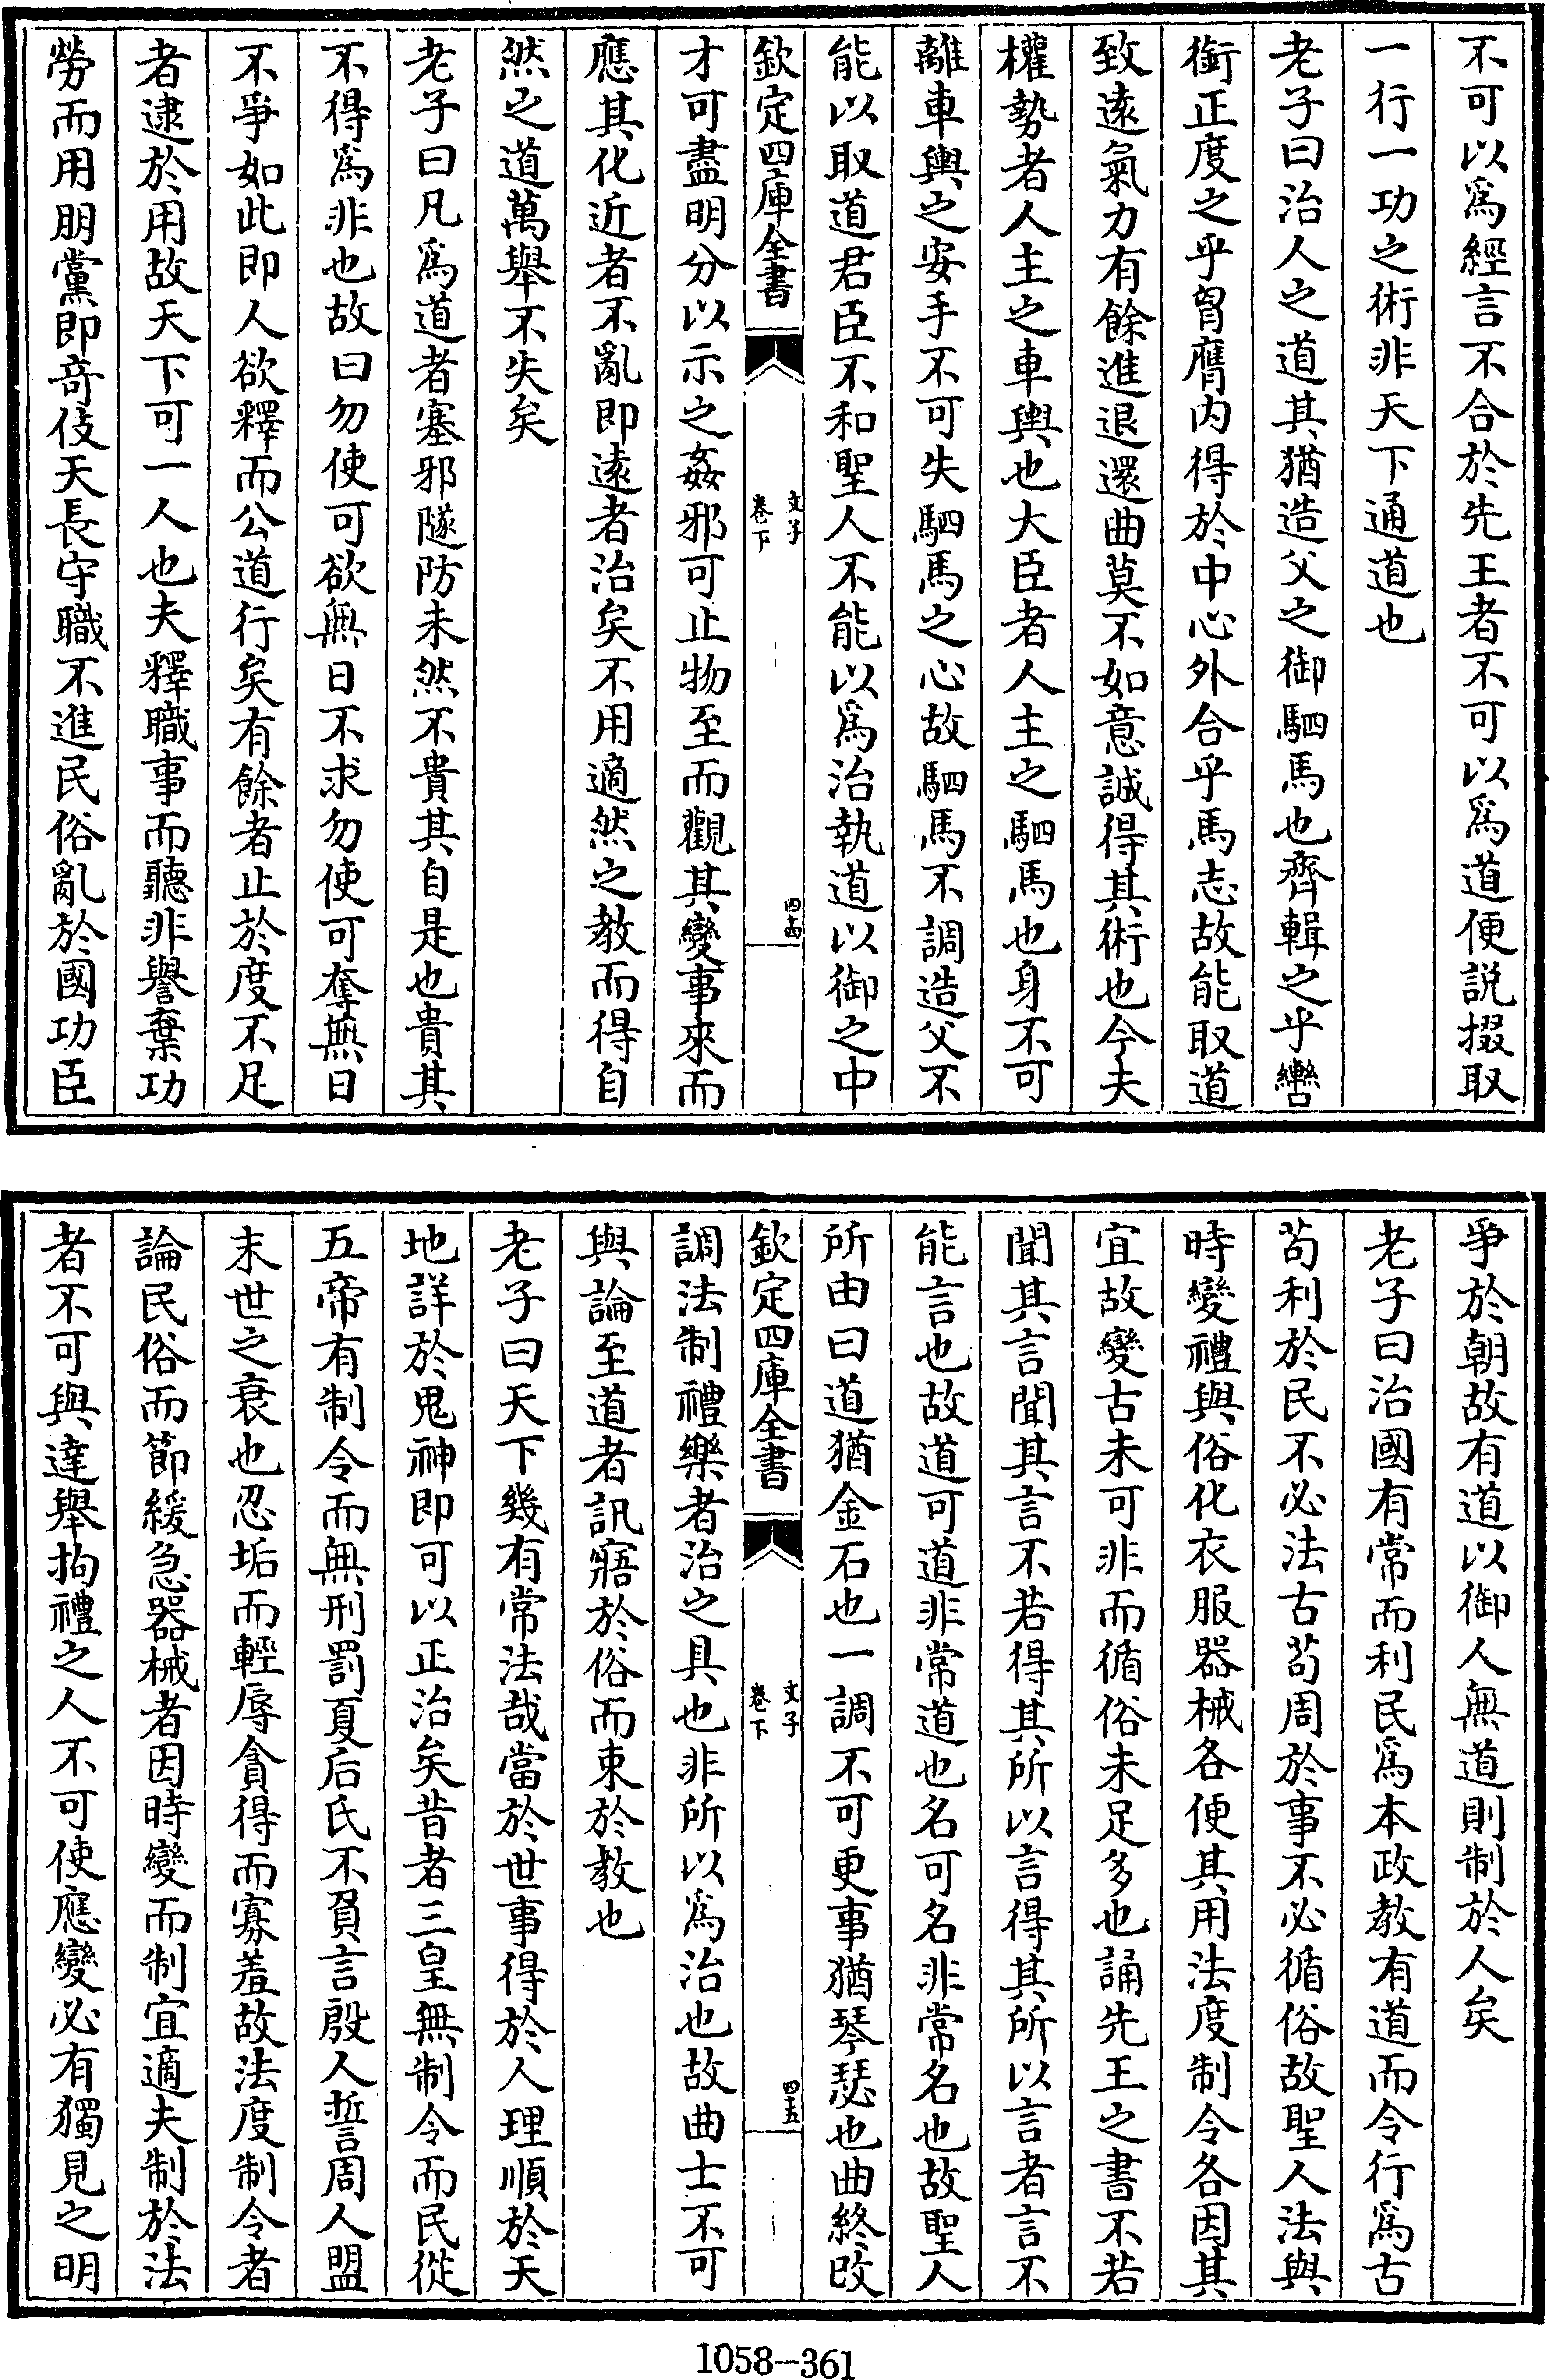 不可以為經言不合於先王者不可以為道便説掇取
一行一功之術非天下通道也
老子曰治人之道其猶造父之御駟馬也齊輯之乎轡
銜正度之乎胷膺内得於中心外合乎馬志故能取道
致遠氣力有餘進退還曲莫不如意誠得其術也今夫
權勢者人主之車輿也大臣者人主之駟馬也身不可
離車輿之安手不可失駟馬之心故駟馬不調造父不
能以取道君臣不和聖人不能以為治執道以御之中
欽定四庫全書
文子
卷下
四十四
才可盡明分以示之姦邪可止物至而觀其變事來而
應其化近者不亂即遠者治矣不用適然之教而得自
然之道萬舉不失矣
老子曰凡為道者塞邪隧防未然不貴其自是也貴其
不得為非也故曰勿使可欲無曰不求勿使可奪無曰
不爭如此即人欲釋而公道行矣有餘者止於度不足
者逮於用故天下可一人也夫釋職事而聽非譽棄功
勞而用朋黨即奇伎天長守職不進民俗亂於國功臣
爭於朝故有道以御人無道則制於人矣
老子曰治國有常而利民為本政教有道而令行為古
苟利於民不必法古苟周於事不必循俗故聖人法與
時變禮與俗化衣服器械各便其用法度制令各因其
宜故變古未可非而循俗未足多也誦先王之書不若
聞其言聞其言不若得其所以言得其所以言者言不
能言也故道可道非常道也名可名非常名也故聖人
所由曰道猶金石也一調不可更事猶琴瑟也曲終改
欽定四庫全書
文子
卷下
四十五
調法制禮樂者治之具也非所以為治也故曲士不可
與論至道者訊寤於俗而束於教也
老子曰天下幾有常法哉當於世事得於人理順於天
地詳於鬼神即可以正治矣昔者三皇無制令而民從
五帝有制令而無刑罰夏后氏不負言殷人誓周人盟
末世之衰也忍垢而輕辱貪得而寡羞故法度制令者
論民俗而節緩急器械者因時變而制宜適夫制於法
者不可與達舉拘禮之人不可使應變必有獨見之明
1058-361